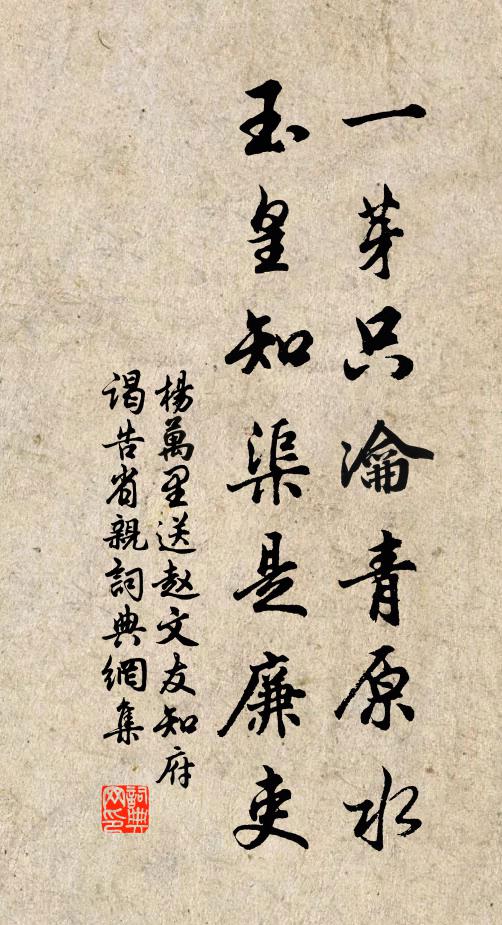 一芽只瀹青原水
玉皇知渠是廉吏
楊萬里送赵文友知府
谒告省親詞典網集
詞典网印